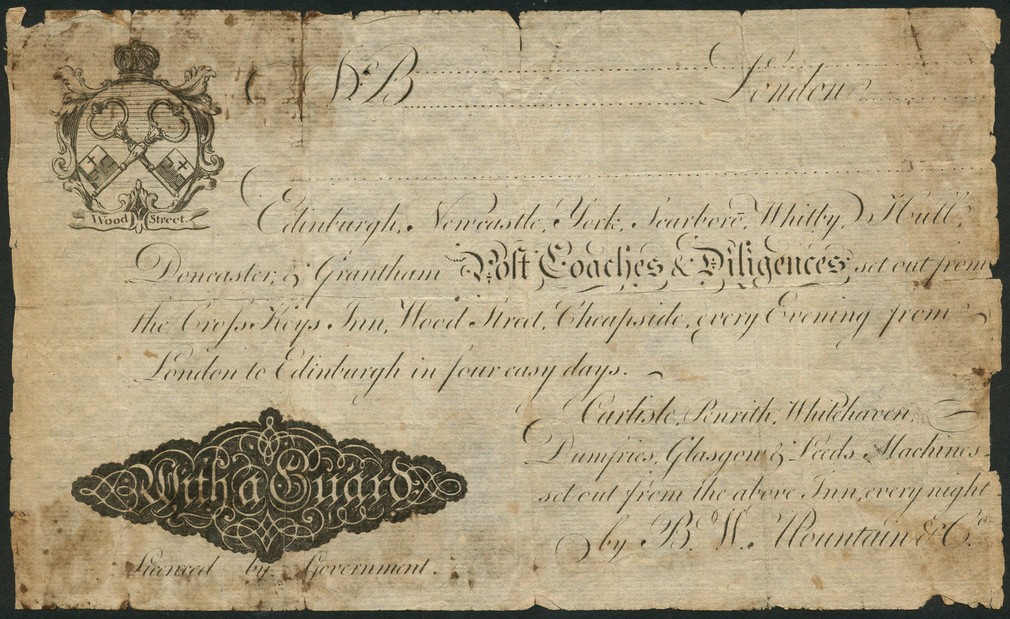 Wood Street.
London
Edinburgh, Newcastle, York, Scarbero, Whitby, Hull,
Doncaster, & Grantham Post Coaches & Diligences, set out from
the Cross Keys Inn, Wood Street, Cheapside, every Evening from
London to Edinburgh in four easy days.
Carlisle, Penrith, Whitehaven,
Dumfries, Glasgow & Leeds Machines
set out from the above Inn, every night
by B. W. Mountain & Co.
With a Guard
Licenced by Government.